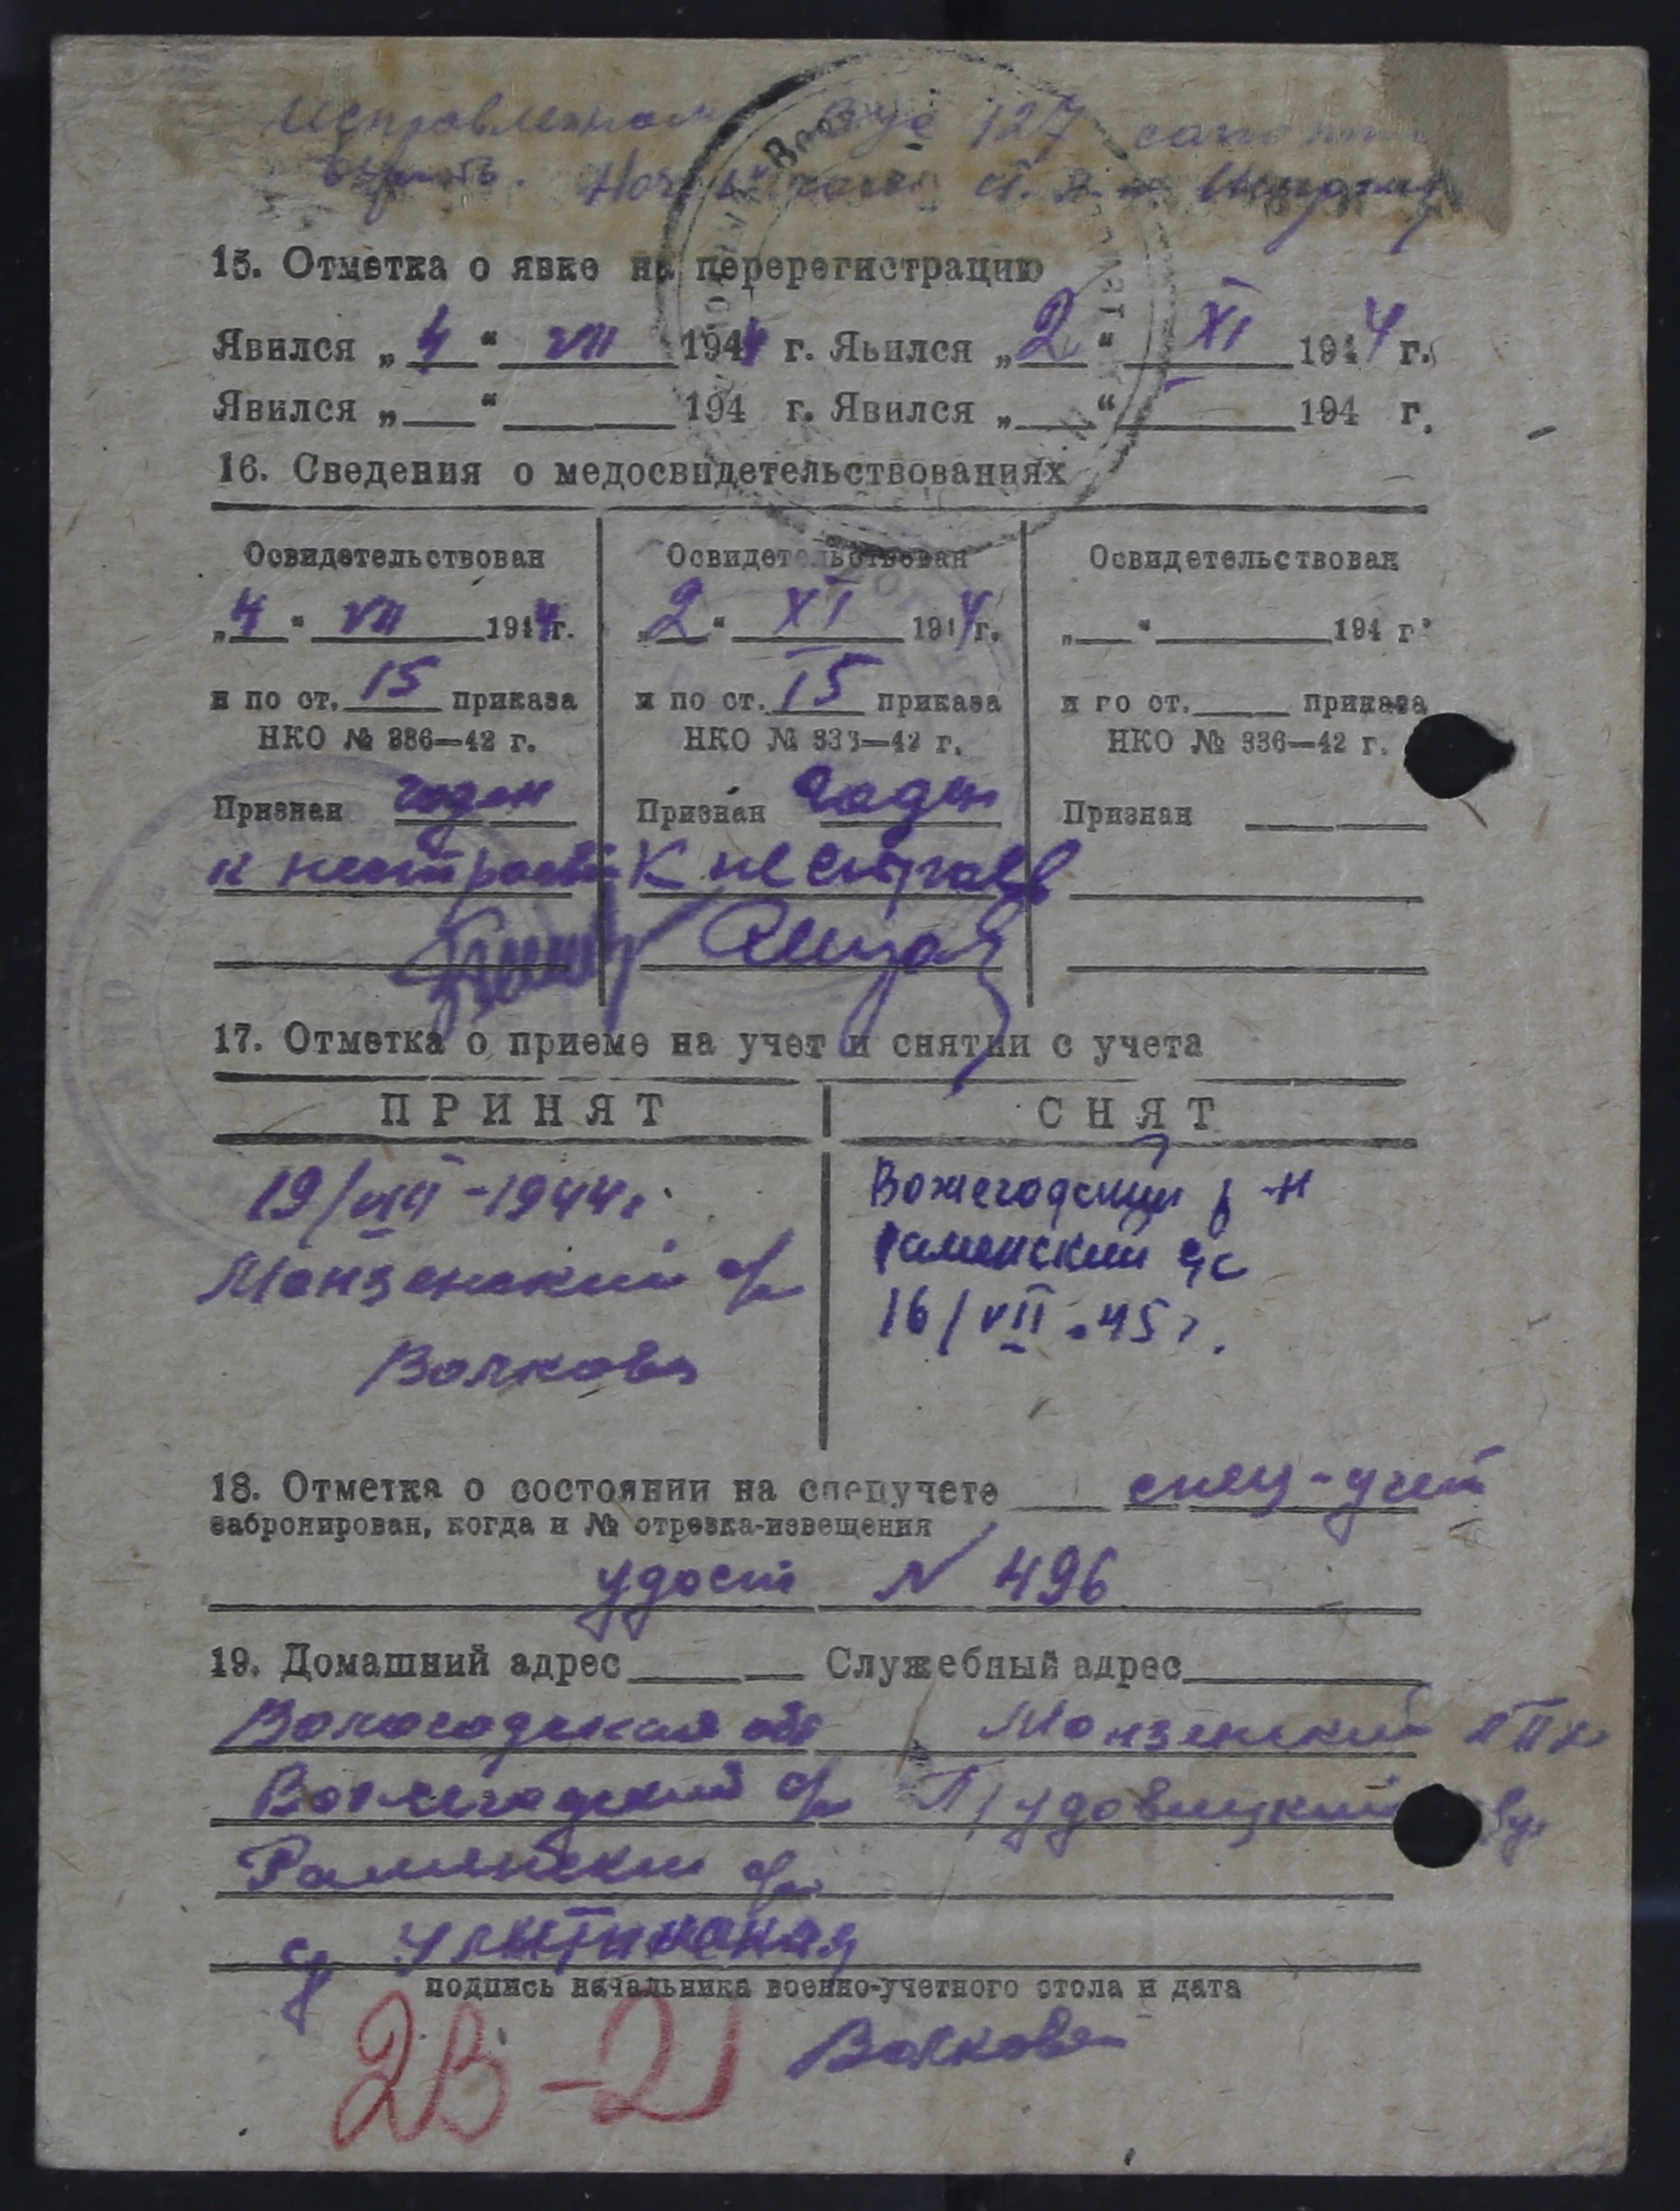 Исправленному ВУС 127
верить.
15. Отметка о явке на перерегистрацию
Явился „4“ VII 1944 г. Явился „2“ XI 1944 г.
Явился „__“ ______ 194 г. Явился „__“ ______ 194 г.
16. Сведения о медосвидетельствованиях
Освидетельствован
„4“ VII 1944 г.
и по ст. 15 приказа
НКО № 336—42 г.
Признан годен
к нестроев
Освидетельствован
„2“ XI 1944 г.
и по ст. 15 приказа
НКО № 336—42 г.
Признан годен
к нестроев
Освидетельствован
„__“ ______ 194 г.
и по ст. ____ приказа
НКО № 336—42 г.
Признан ____
17. Отметка о приеме на учет и снятии с учета
ПРИНЯТ
19/VIII-1944 г.
Монзенский с/с
Волкова
СНЯТ
Вожегодский р-н
Раменский с/с
16/VII.45 г.
18. Отметка о состоянии на спецучете ____ спец-учет
забронирован, когда и № отрезка-извещения
удост N 496
19. Домашний адрес ____ Служебный адрес ____
Вологодская обл Монзенский ЛПХ
Вожегодский р/н Трудовицкий
Раменский с/с
д
подпись начальника военно-учетного стола и дата
Волкова
2В-21